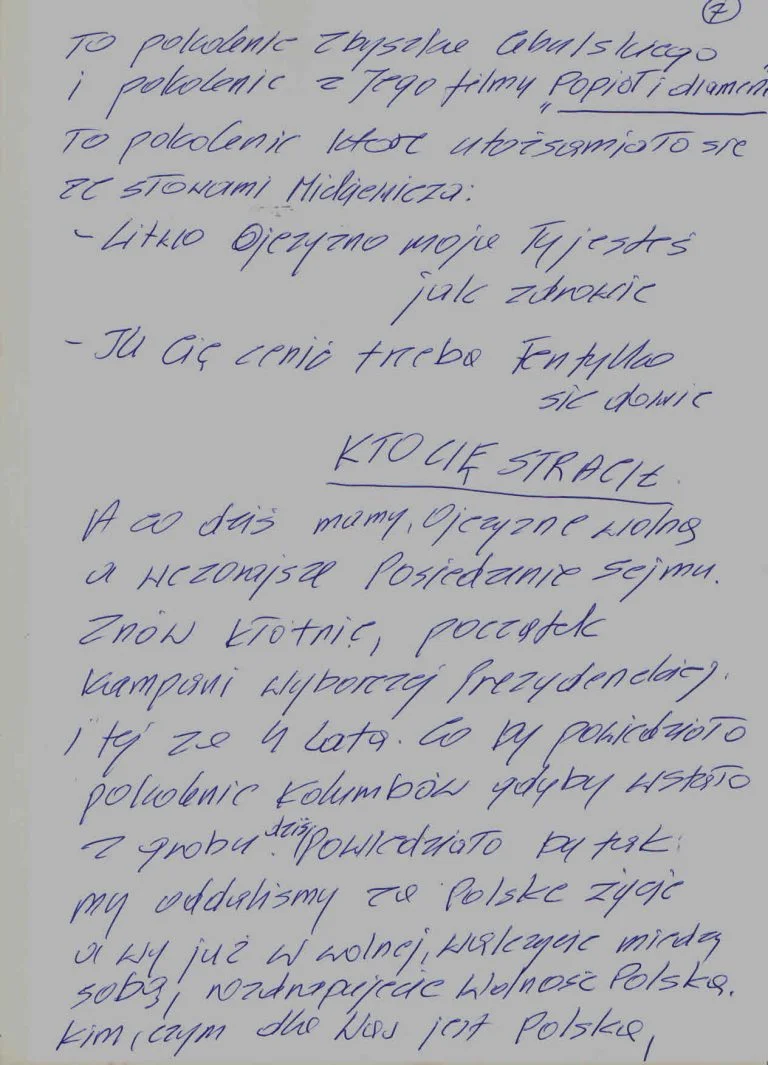 7
To pokolenie Zbyszka Cybulskiego
i pokolenie z Jego filmy "Popiół i diament
To pokolenie które utożsamiało się
ze słowami Mickiewicza:
- Litwo Ojczyzno moja Ty jesteś
jak zdrowie
- Ile Cię cenić trzeba Ten tylko
się dowie
KTO CIĘ STRACIŁ.
A co dziś mamy, Ojczyznę wolną
a wczorajsze Posiedzenie Sejmu.
Znów kłótnie, początek
kampani wyborczej Prezydenckiej.
i tej za 4 lata. Co by powiedziało
pokolenie Kolumbów gdyby wstało
z grobu dziś. Powiedziało by tak:
my oddaliśmy za Polskę życie
a wy już w wolnej, walczycie miedzy
sobą, rozdrapujecie Wolność Polską.
Kim, czym dla Was jest Polska,